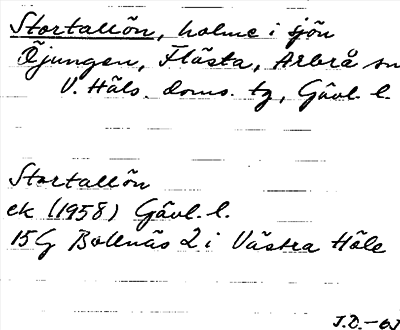 Stortallön, holme i sjön
Öjungen, Flästa, Arbrå sn
V. Häls. doms. tg, Gävl. l.
Stortallön
ek (1958) Gävl. l.
15G Bollnäs 2 i Västra Häls
J.D.-63